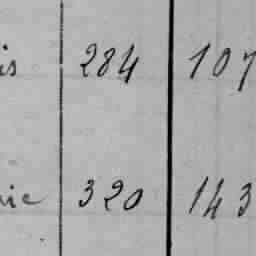 is 284 107
nie 320 143